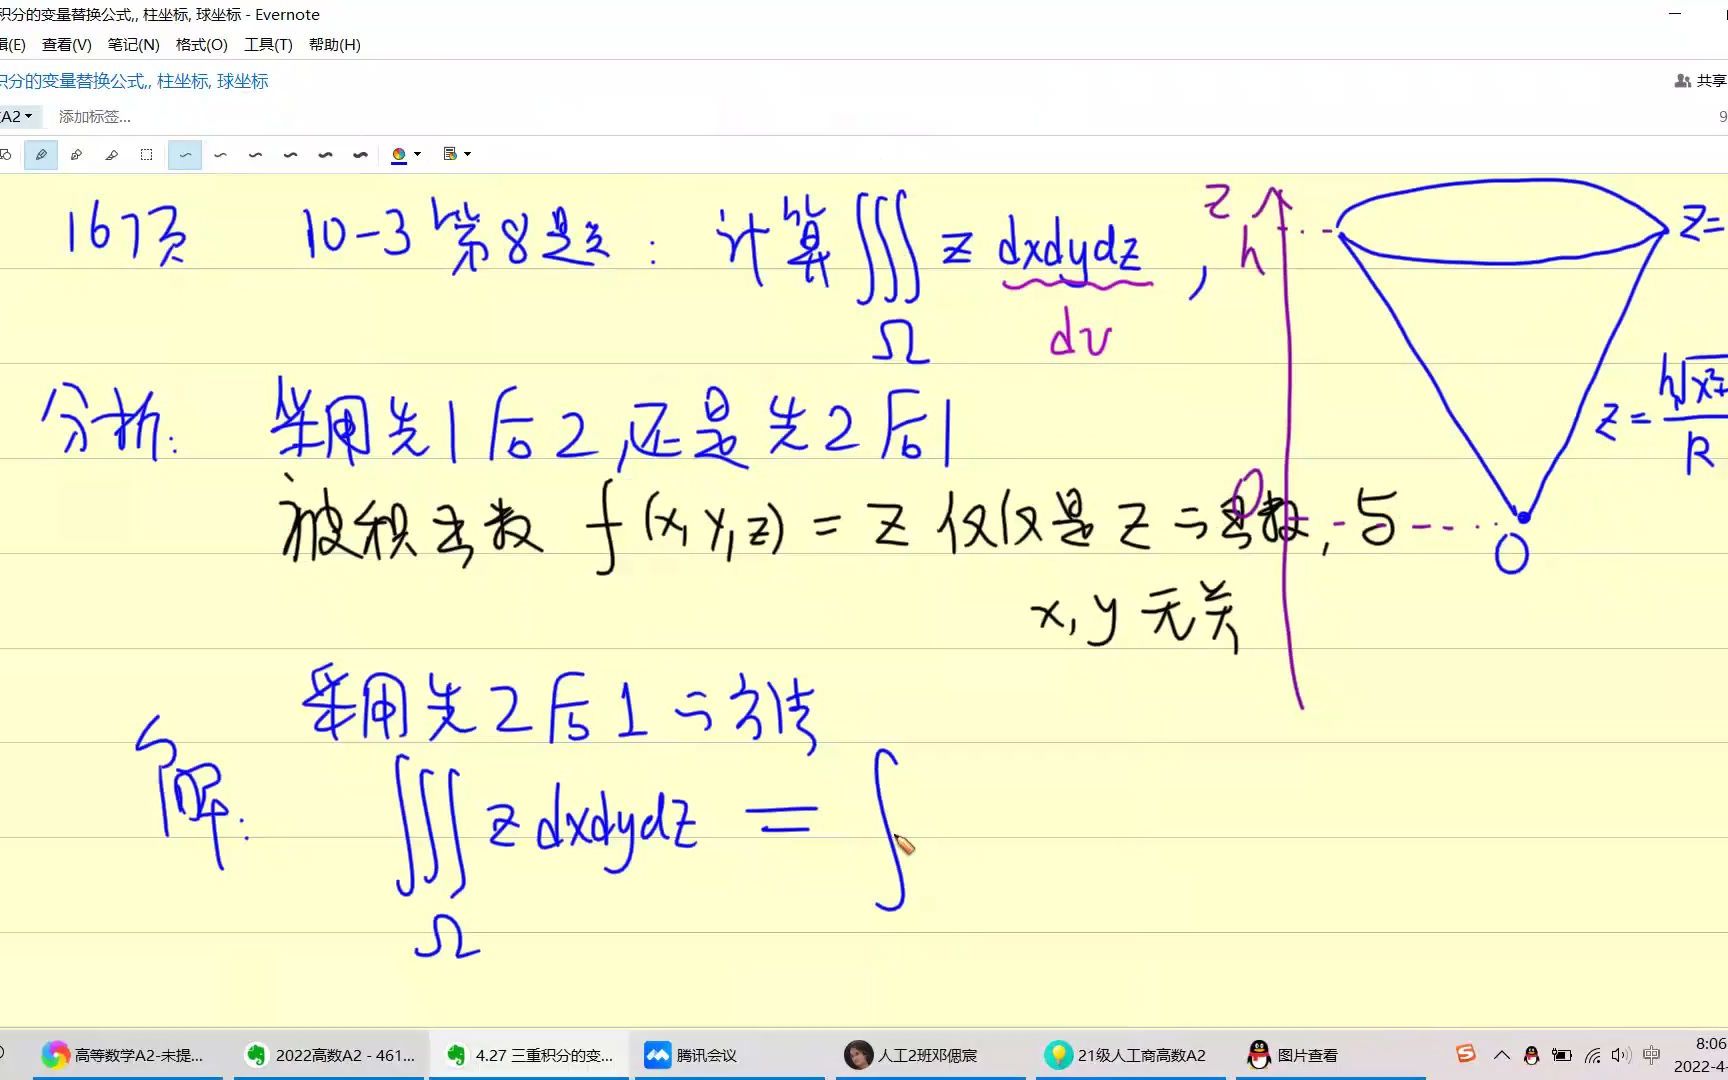 积分的变量替换公式,, 柱坐标, 球坐标 - Evernote
辑(E) 查看(V) 笔记(N) 格式(O) 工具(T) 帮助(H)
积分的变量替换公式,, 柱坐标, 球坐标
共享
A2 添加标签...
9
167页 10-3第8题: 计算∭ z dxdydz,
Ω
dv
z
h
z=
分析: 采用先1后2,还是先2后1
z = h√x²+
R
被积函数 f(x,y,z) = z 仅仅是z的函数, 与
x,y 无关
0
O
采用先2后1的方法
解: ∭ z dxdydz = ∫
Ω
高等数学A2-未提... 2022高数A2 - 461... 4.27 三重积分的变... 腾讯会议 人工2班邓倨宸 21级人工商高数A2 图片查看
中 8:06
2022-4